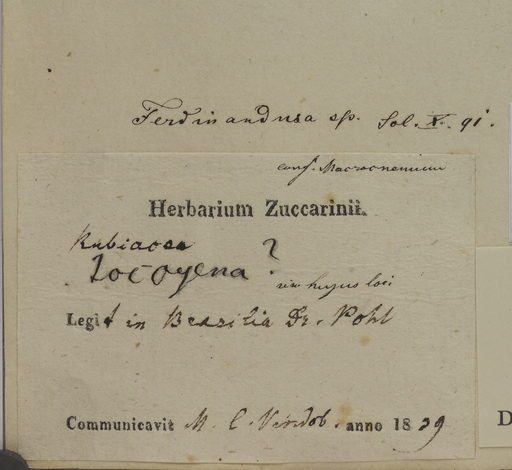 Ferdinandusa sp. Sol. X. 91.
conf. Macrocnemum
Herbarium Zuccarinii.
Rubiacea
Tocoyena ?
vix hujus loci
Legit in Brasilia Dr. Pohl
Communicavit M. C. Vindob. anno 1839
D